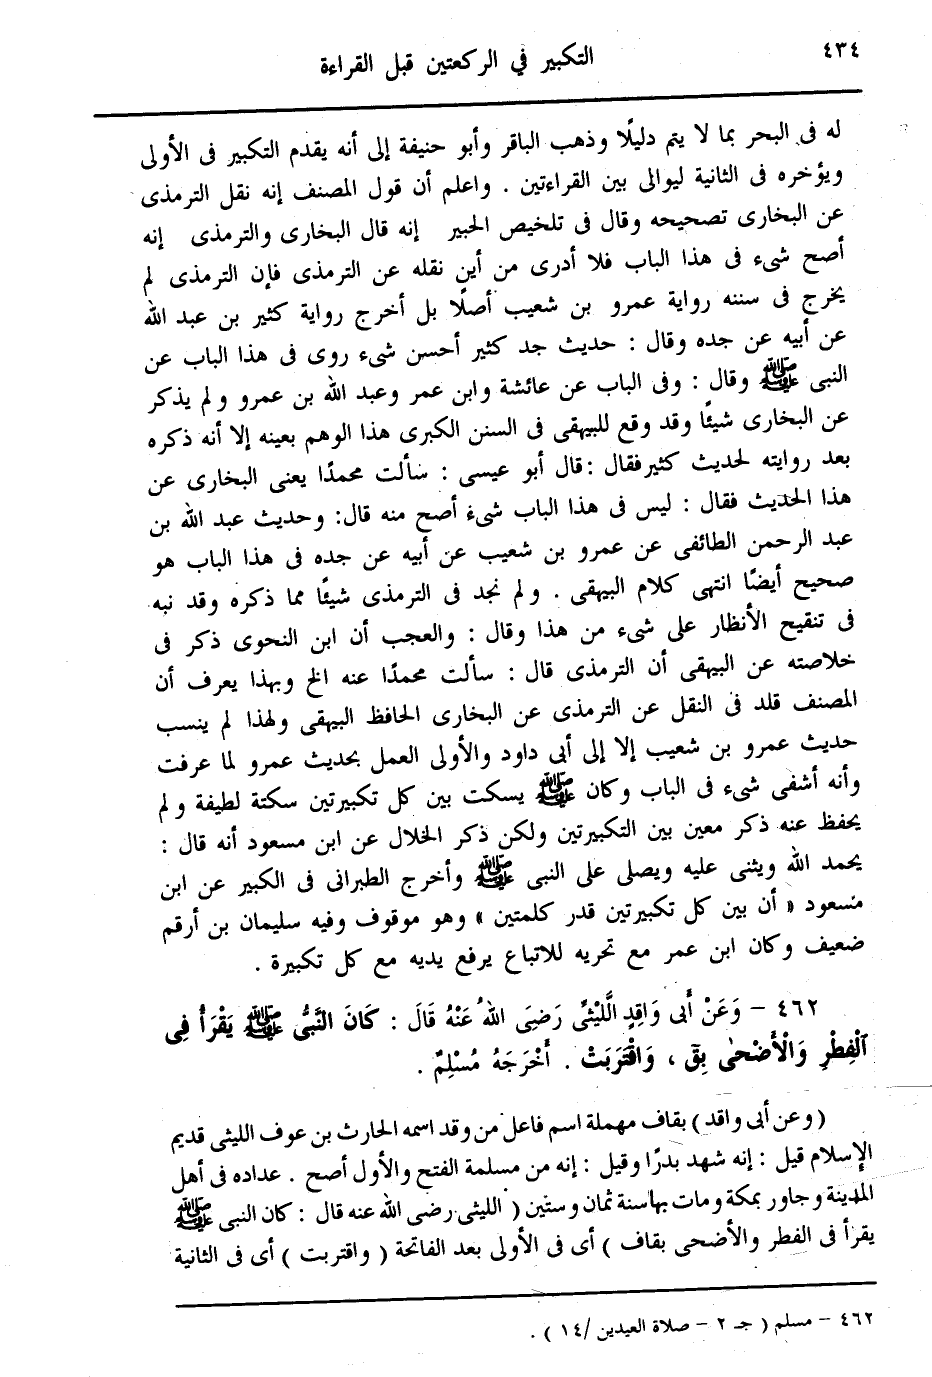 ٤٣٤
التكبير في الركعتين قبل القراءة
له فى البحر بما لا يتم دليلًا وذهب الباقر وأبو حنيفة إلى أنه يقدم التكبير فى الأولى
ويؤخره فى الثانية ليوالى بين القراءتين . واعلم أن قول المصنف إنه نقل الترمذى
عن البخارى تصحيحه وقال فى تلخيص الحبير إنه قال البخارى والترمذى إنه
أصح شىء فى هذا الباب فلا أدرى من أين نقله عن الترمذى فإن الترمذى لم
يخرج فى سننه رواية عمرو بن شعيب أصلًا بل أخرج رواية كثير بن عبد الله
عن أبيه عن جده وقال : حديث جد كثير أحسن شىء روى فى هذا الباب عن
النبى ﷺ وقال : وفى الباب عن عائشة وابن عمر وعبد الله بن عمرو ولم يذكر
عن البخارى شيئًا وقد وقع للبيهقى فى السنن الكبرى هذا الوهم بعينه إلا أنه ذكره
بعد روايته لحديث كثير فقال : قال أبو عيسى : سألت محمدًا يعنى البخارى عن
هذا الحديث فقال : ليس فى هذا الباب شىء أصح منه قال: وحديث عبد الله بن
عبد الرحمن الطائفى عن عمرو بن شعيب عن أبيه عن جده فى هذا الباب هو
صحيح أيضًا انتهى كلام البيهقى . ولم نجد فى الترمذى شيئًا مما ذكره وقد نبه
فى تنقيح الأنظار على شىء من هذا وقال : والعجب أن ابن النحوى ذكر فى
خلاصته عن البيهقى أن الترمذى قال : سألت محمدًا عنه الخ وبهذا يعرف أن
المصنف قلد فى النقل عن الترمذى عن البخارى الحافظ البيهقى ولهذا لم ينسب
حديث عمرو بن شعيب إلا إلى أبى داود والأولى العمل بحديث عمرو لما عرفت
وأنه أشفى شىء فى الباب وكان ﷺ يسكت بين كل تكبيرتين سكتة لطيفة ولم
يحفظ عنه ذكر معين بين التكبيرتين ولكن ذكر الخلال عن ابن مسعود أنه قال :
يحمد الله ويثنى عليه ويصلى على النبى ﷺ وأخرج الطبرانى فى الكبير عن ابن
مسعود « أن بين كل تكبيرتين قدر كلمتين » وهو موقوف وفيه سليمان بن أرقم
ضعيف وكان ابن عمر مع تحريه للاتباع يرفع يديه مع كل تكبيرة .
٤٦٢ – وَعَنْ أَبى وَاقِدٍ الَّليْثىِّ رَضِىَ اللهُ عَنْهُ قَالَ : كَانَ النَّبىُّ ﷺ يَقْرَأُ فِى
اَلْفِطْرِ وَالْأَضْحٰى بِقَ ، وَاقْتَرَبَتْ . أَخْرَجَهُ مُسْلِمٌ .
( وعن أبى واقد ) بقاف مهملة اسم فاعل من وقد اسمه الحارث بن عوف الليثى قديم
الإسلام قيل : إنه شهد بدرًا وقيل : إنه من مسلمة الفتح والأول أصح . عداده فى أهل
المدينة وجاور بمكة ومات بها سنة ثمان وستين ( الليثى رضى الله عنه قال : كان النبى ﷺ
يقرأ فى الفطر والأضحى بقاف ) أى فى الأولى بعد الفاتحة ( واقتربت ) أى فى الثانية
٤٦٢ – مسلم ( جـ ٢ – صلاة العيدين /١٤ ) .